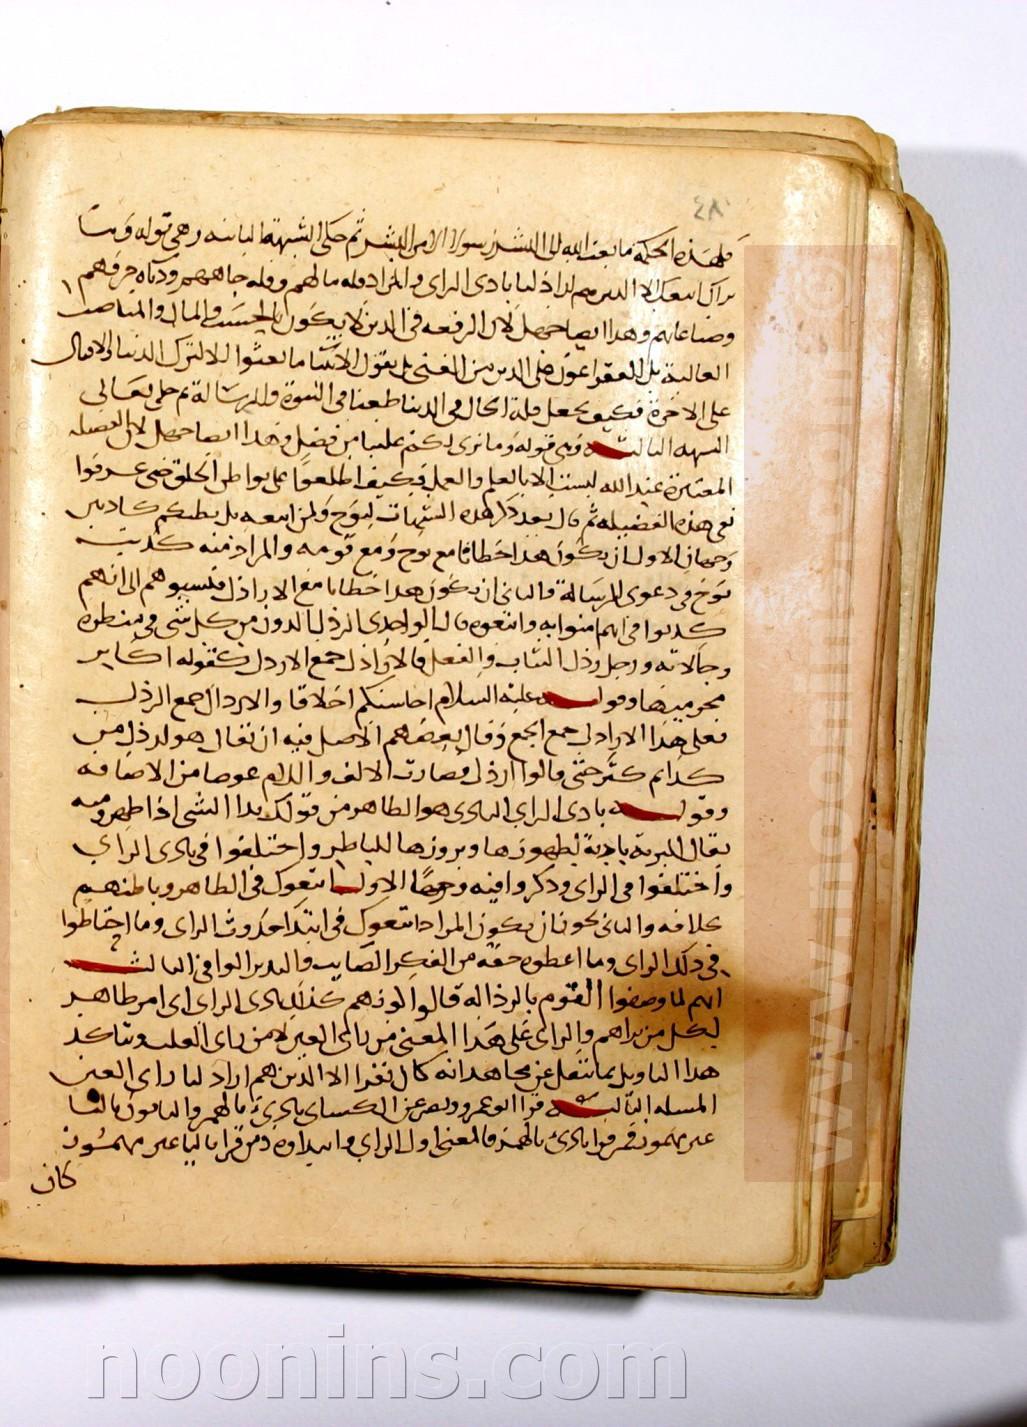 ٤٨
فلهذه الحكمة ما بعث الله الى البشر رسولا الا من البشر ثم حكى الشبهة الثانية وهي قوله وما
نراك اتبعك الا الذين هم اراذلنا بادى الراى والمراد قلة مالهم وقلة جاههم ودناءة حرفهم
وصناعاتهم وهذا ايضا جهل لان الرفعة في الدين لا يكون بالحسب والمال والمناصب
العالية بل الفقر اعون على الدين من الغنى بل نقول الانبيا ما بعثوا الا لترك الدنيا والاقبال
على الاخرة فكيف يجعل قلة المال في الدنيا طعنا في النبوة والرسالة ثم حكى تعالى
الشبهة الثالثة وهي قوله وما نرى لكم علينا من فضل وهذا ايضا جهل لان الفضيلة
المعتبرة عند الله ليست الا بالعلم والعمل فكيف اطلعوا على بواطن الخلق حتى عرفوا
نفى هذه الفضيلة ثم قال بعد ذكر هذه الشبهات لنوح ولمن اتبعه بل نظنكم كاذبين
وجهان الاول ان يكون هذا خطابا مع نوح ومع قومه والمراد منه كذبت
نوح في دعوى الرسالة والثانى ان يكون هذا خطابا مع الاراذل فنسبوهم الى انهم
كذبوا في انهم امنوا به واتبعوه قال الواحدى الرذل الدون من كل شى في منظره
وحالاته ورجل رذل الثياب والفعل والاراذل جمع الارذل كقوله اكابر
مجرميها وقوله عليه السلام احاسنكم اخلاقا والارذال جمع الرذل
فعلى هذا الاراذل جمع الجمع وقال بعضهم الاصل فيه ان يقال هو ارذل من
كذا ثم كثر حتى قالوا ارذل فصارت الالف واللام عوضا من الاضافة
وقوله بادى الراي البادى هو الظاهر من قولك بدا الشى اذا ظهر ومنه
يقال البرية بادية لظهورها وبروزها للناظر واختلفوا في بادى الراي
واختلفوا في الراى وذكروا فيه وجوها الاول اتبعوك في الظاهر وباطنهم
بخلافه والثانى يجوز ان يكون المراد اتبعوك في ابتدا حدوث الراى وما احتاطوا
في ذلك الراى وما اعطوه حقه من الفكر الصايب والتدبر الوافى الثالث
انهم لما وصفوا القوم بالرذالة قالوا كونهم كذلك بادى الراى اى امر ظاهر
لكل من يراهم والراى على هذا المعنى من راى العين لا من راى القلب ويتاكد
هذا التاويل بما نقل عن مجاهد انه كان يقرا الا الذين هم اراذلنا راى العين
المسلة الثالثة قرا ابو عمرو ونصير عن الكساى بادئ بالهمز والباقون باليا
غير مهموز فمن قرا بادئ بالهمز فالمعنى اول الراي وابتداوه ومن قرا باليا غير مهموز
كان
www.noonins.com
noonins.com